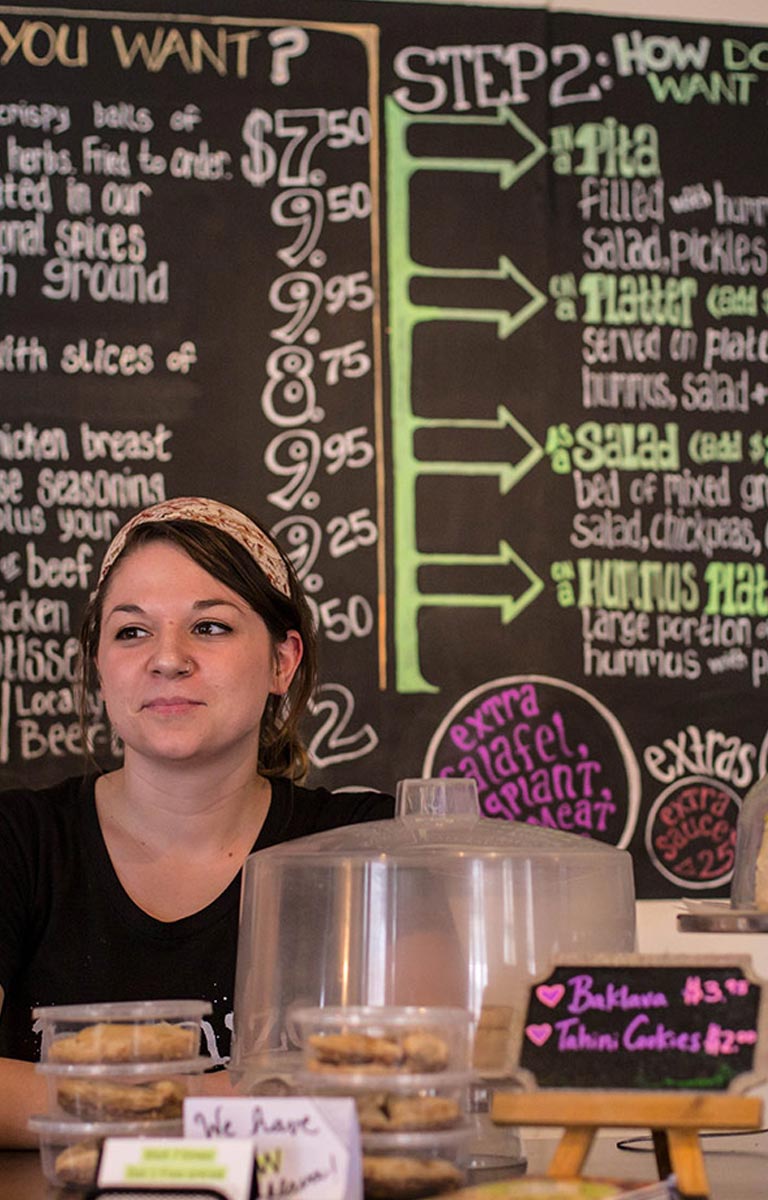 YOU WANT?
crispy balls of
herbs. Fried to order.
$7.50
in our
9.50
spices
ground
9.95
with slices of
8.75
breast
seasoning
9.95
plus your
9.25
beef
.50
Local
Beer
2
STEP 2: HOW DO
WANT
in a Pita
filled with
salad, pickles
on a Platter (add $
served on
hummus, salad +
as a Salad (add $
bed of mixed
salad, chickpeas,
on a Hummus
large portion
hummus with
extra
falafel,
extras
extra
sauces
.25
Baklava $3.95
Tahini Cookies $2.00
We have